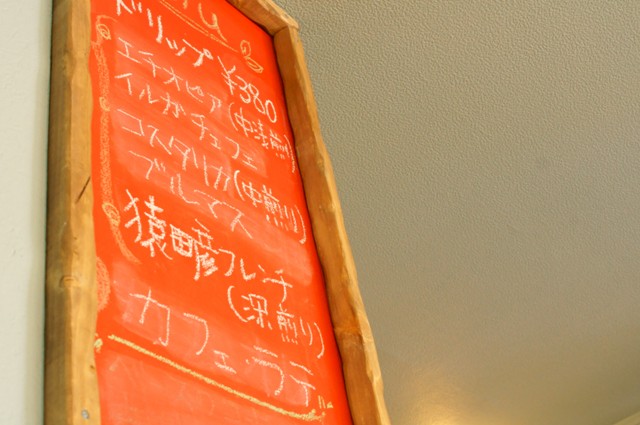 ドリップ ¥380
エチオピア
イルガチェフェ (中浅煎)
コスタリカ (中煎り)
ブルマス
猿田彦フレンチ
(深煎り)
カフェ・ラテ